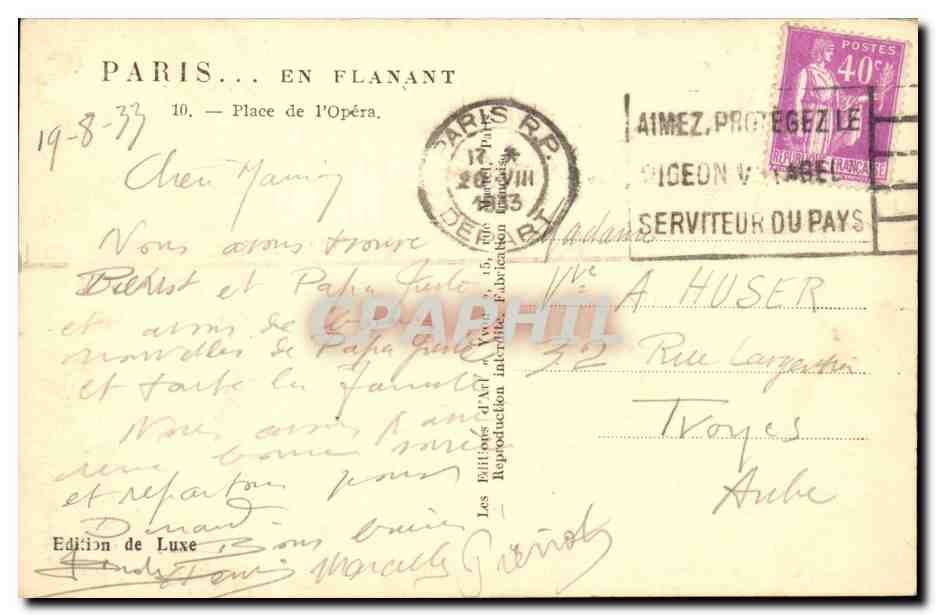 PARIS... EN FLANANT
10. — Place de l'Opéra.
19-8-33
Nous avons trouvé
et Papa
et avons de
nouvelles de Papa
et toute la famille
Nous avons
bonne soirée
et repartons pour
Dinard
Bons baisers
Marcelle Pierrot
Edition de Luxe
Les Editions d'Art Yvon, 15, rue Martel, Paris
Reproduction interdite. Fabrication Française.
PARIS R.P.
17 *
20 VIII
1933
DEPART
AIMEZ, PROTEGEZ LE
PIGEON VOYAGEUR
SERVITEUR DU PAYS
POSTES
40c
REPUBLIQUE FRANÇAISE
Madame
Vve A HUSER
32 Rue Largentier
Troyes
Aube
CPAPHIL